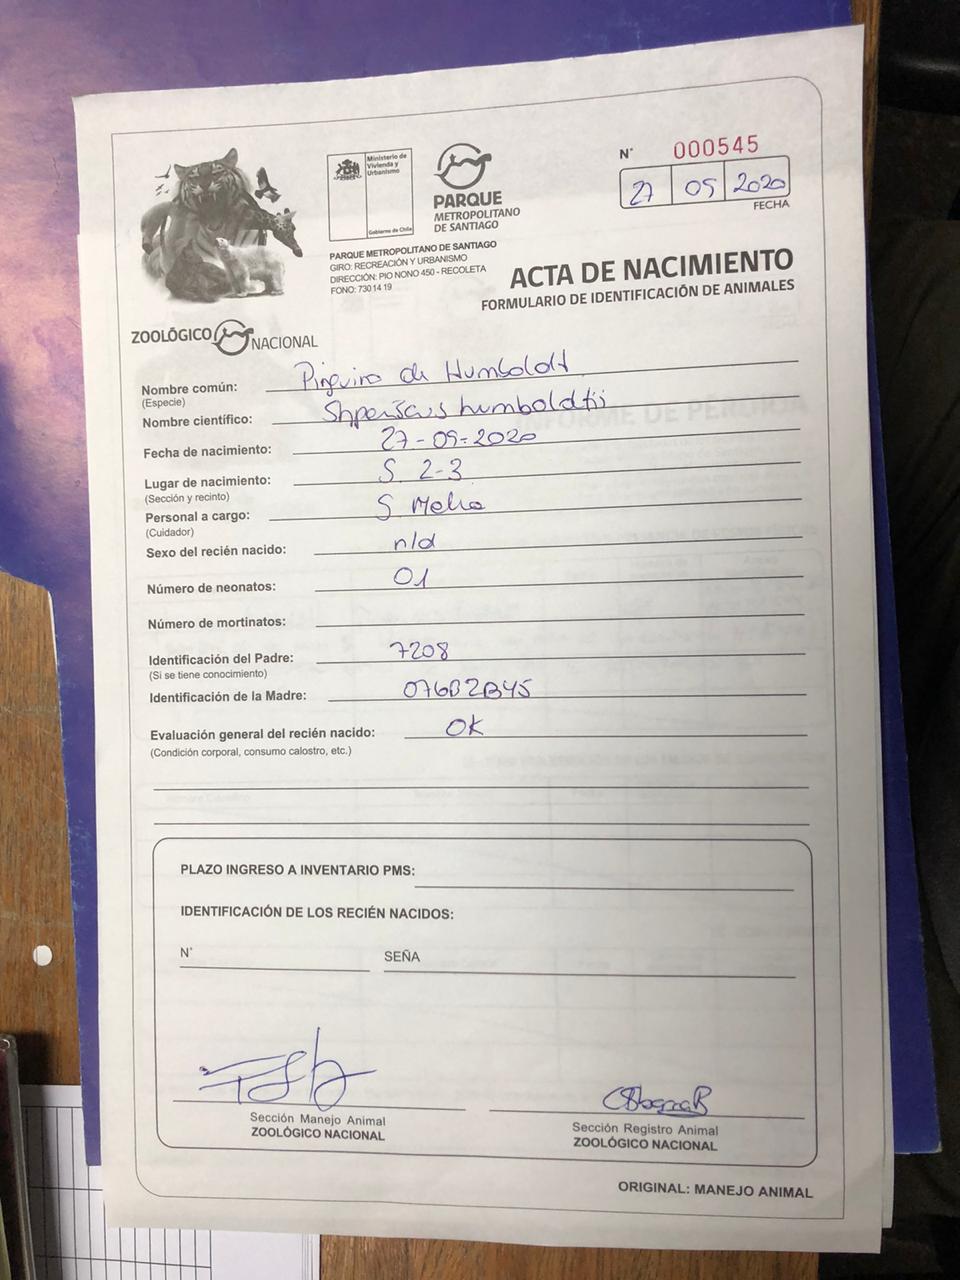 Ministerio de
Vivienda y
Urbanismo
Gobierno de Chile
PARQUE
METROPOLITANO
DE SANTIAGO
N° 000545
27 09 2020
FECHA
PARQUE METROPOLITANO DE SANTIAGO
GIRO: RECREACIÓN Y URBANISMO
DIRECCIÓN: PIO NONO 450 - RECOLETA
FONO: 730 14 19
ACTA DE NACIMIENTO
FORMULARIO DE IDENTIFICACIÓN DE ANIMALES
ZOOLÓGICO NACIONAL
Nombre común: Pinguino de Humboldt
(Especie)
Nombre científico: humboldtii
Fecha de nacimiento: 27-09-2020
Lugar de nacimiento: S 2-3
(Sección y recinto)
Personal a cargo: S
(Cuidador)
Sexo del recién nacido: n/d
Número de neonatos: 01
Número de mortinatos:
Identificación del Padre: 7208
(Si se tiene conocimiento)
Identificación de la Madre: 076B2B45
Evaluación general del recién nacido: OK
(Condición corporal, consumo calostro, etc.)
PLAZO INGRESO A INVENTARIO PMS:
IDENTIFICACIÓN DE LOS RECIÉN NACIDOS:
N° SEÑA
Sección Manejo Animal
ZOOLÓGICO NACIONAL
Sección Registro Animal
ZOOLÓGICO NACIONAL
ORIGINAL: MANEJO ANIMAL